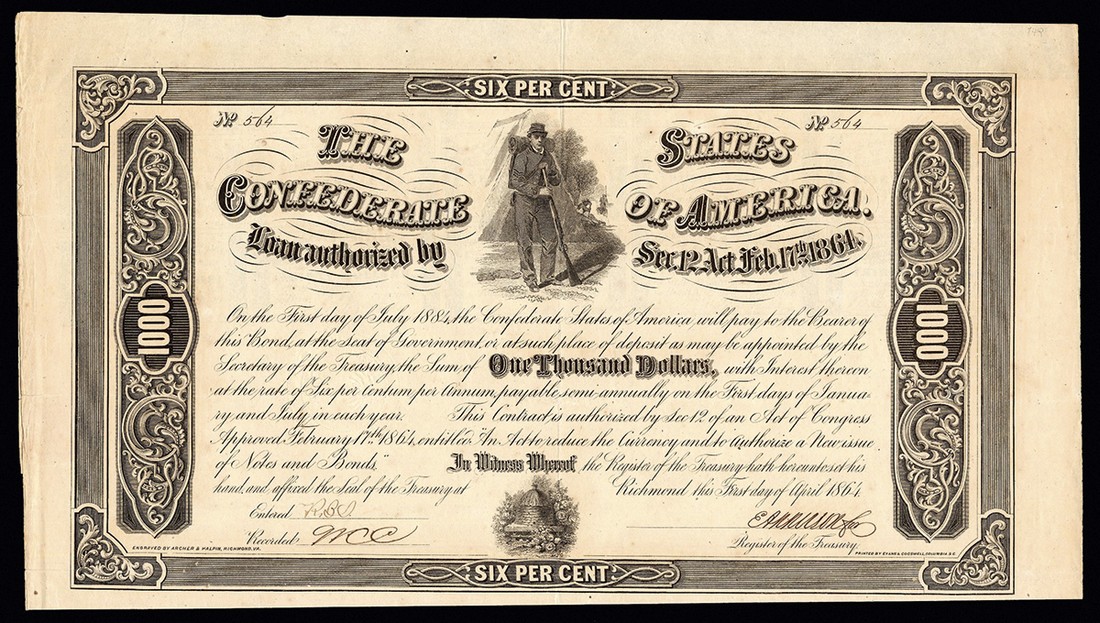 SIX PER CENT
No 564
No 564
THE STATES
CONFEDERATE OF AMERICA.
Loan authorized by Sec. 12, Act Feb. 17th 1864.
1000
1000
On the First day of July 1884, the Confederate States of America, will pay to the Bearer of
this Bond, at the Seat of Government, or at such place of deposit as may be appointed by the
Secretary of the Treasury, the Sum of One Thousand Dollars, with Interest thereon
at the rate of Six per Centum per Annum, payable semi-annually on the First days of Janua-
ry and July in each year. This Contract is authorized by Sec 12 of an Act of Congress
Approved February 17th 1864, entitled "An Act to reduce the Currency and to Authorize a New issue
of Notes and Bonds." In Witness Whereof, the Register of the Treasury hath hereunto set his
hand, and affixed the Seal of the Treasury at Richmond this First day of April 1864
Entered
Recorded
Register of the Treasury.
ENGRAVED BY ARCHER & HALPIN, RICHMOND, VA.
PRINTED BY EVANS & COGSWELL, COLUMBIA S.C.
SIX PER CENT